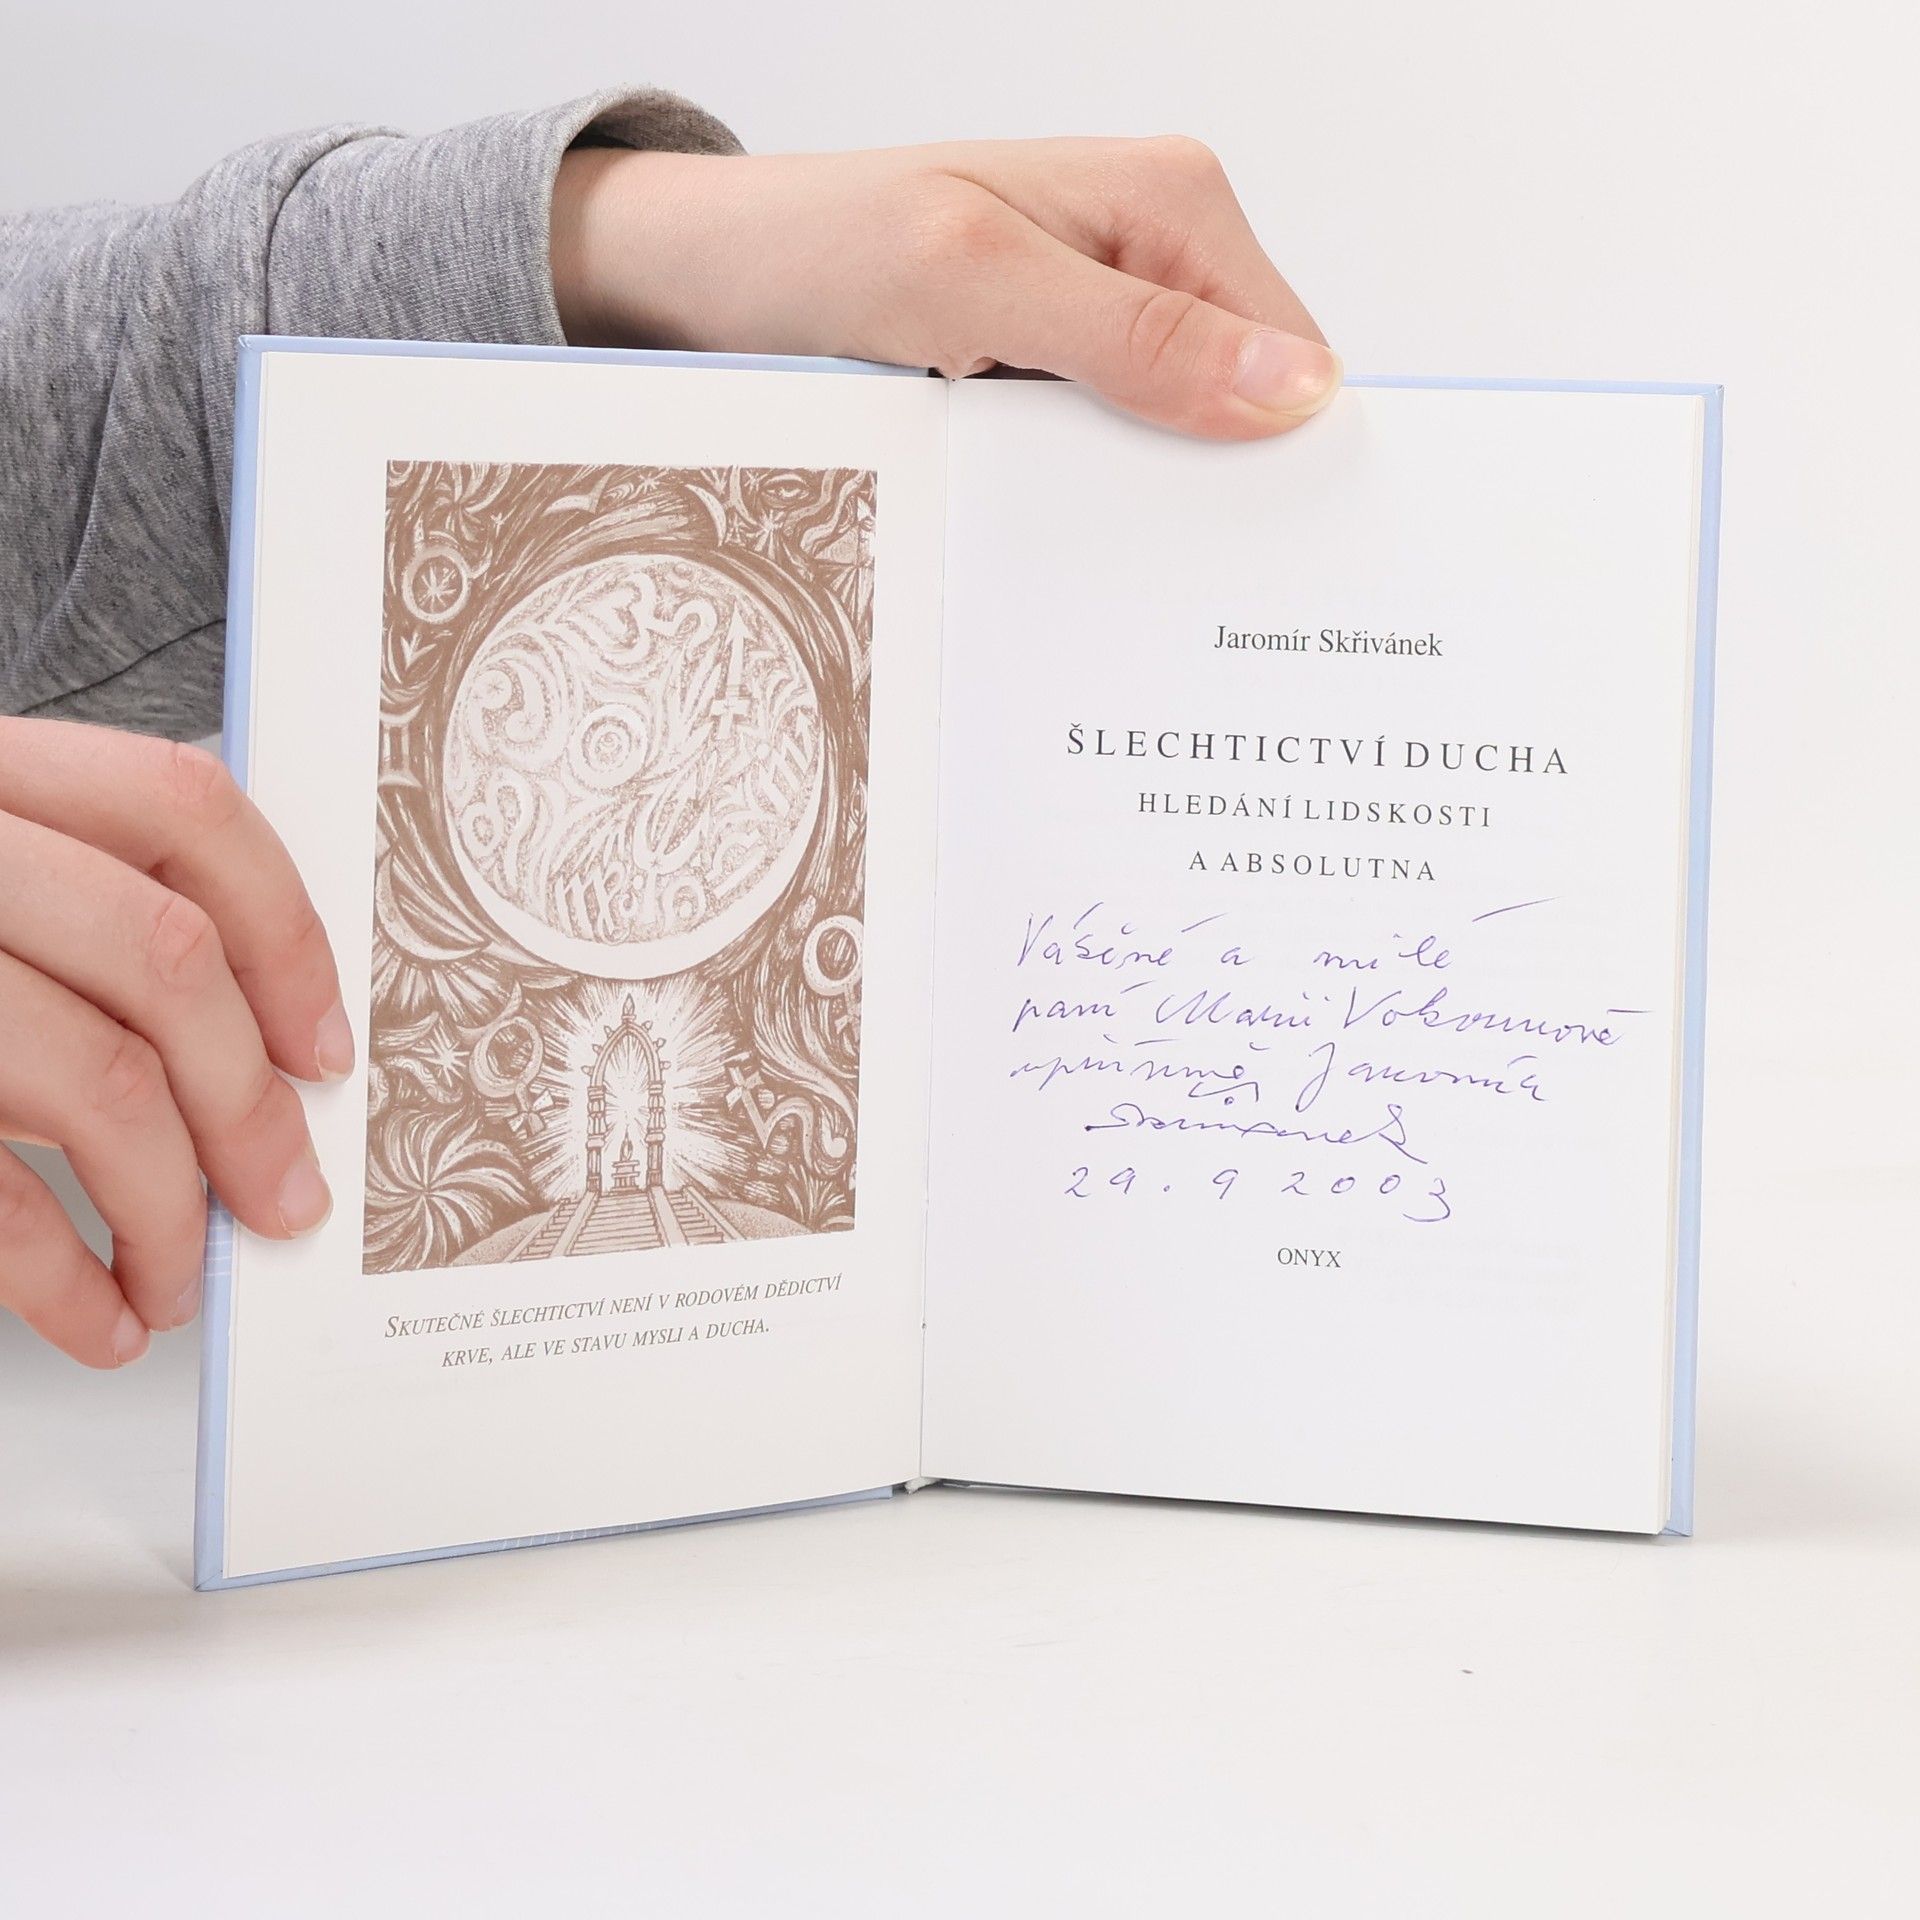 SKUTEČNÉ ŠLECHTICTVÍ NENÍ V RODOVÉM DĚDICTVÍ
KRVE, ALE VE STAVU MYSLI A DUCHA.
Jaromír Skřivánek
ŠLECHTICTVÍ DUCHA
HLEDÁNÍ LIDSKOSTI
A ABSOLUTNA
Vážené a milé
paní Marii Vokounové
upřímně Jaromír
Skřivánek
29. 9 2003
ONYX